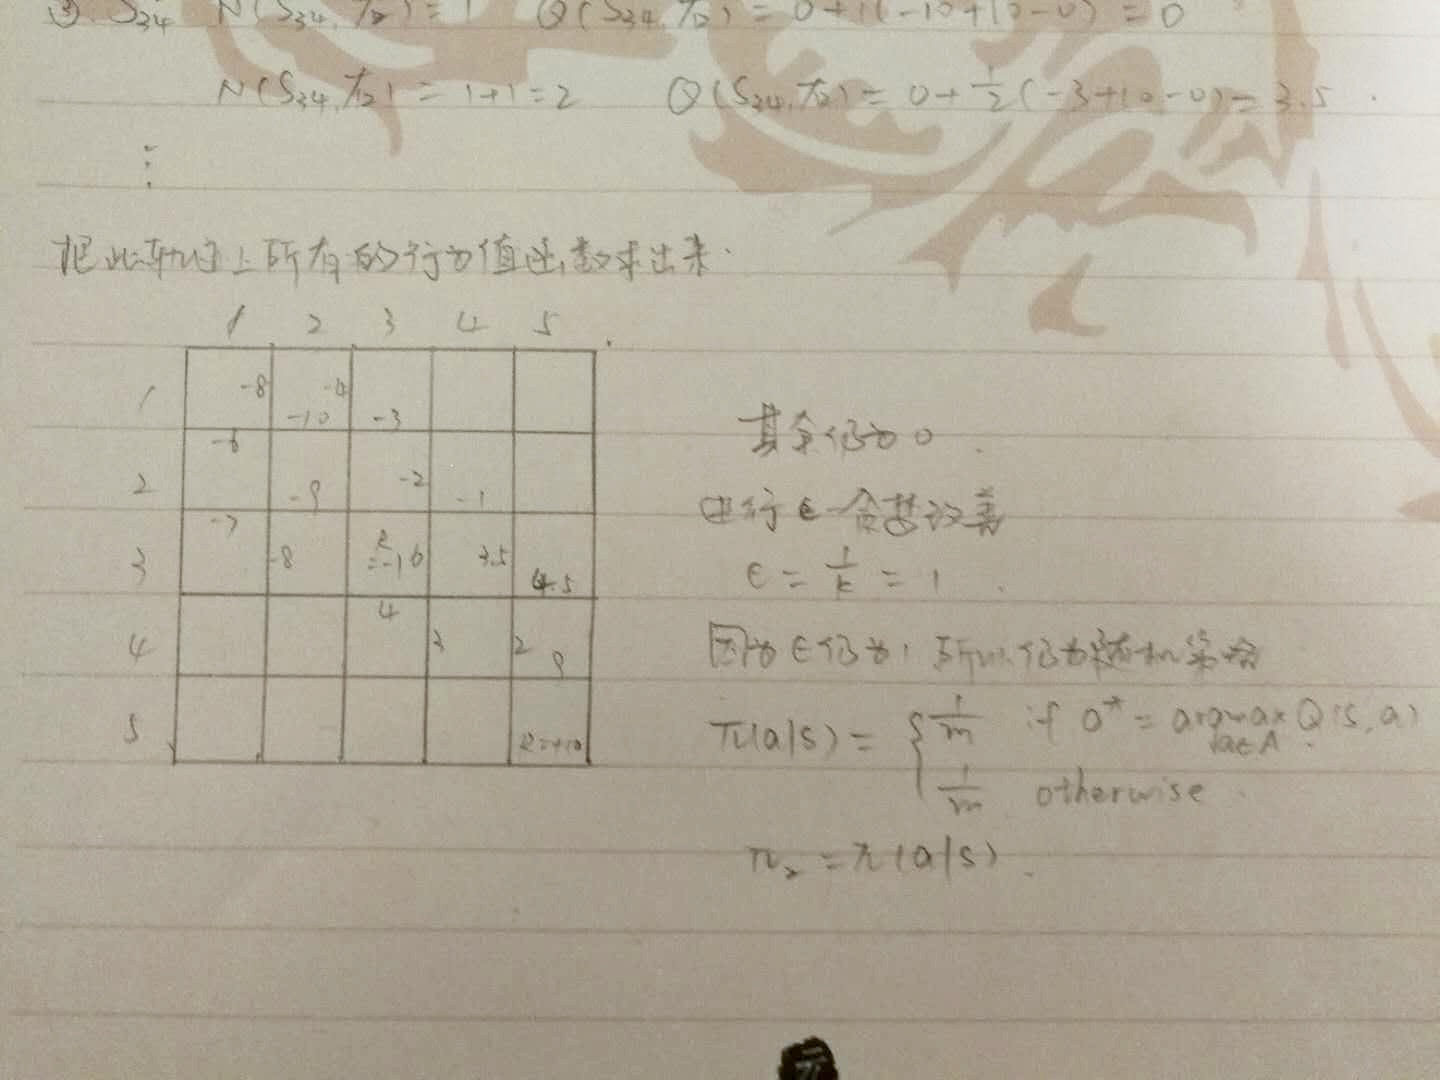 ③ S34 N(S34, 右) = 1 Q(S34, 右) = 0+1(-10+10-0) = 0
N(S34, 右) = 1+1=2 Q(S34, 右) = 0+1/2(-3+10-0)= 3.5
⋮
把此轨迹上所有的行为值函数求出来.
1 2 3 4 5
1 -8 -4
-10 -3
-6
2 -9 -2 -1
-7
3 -8 R=-10 3.5 4.5
4
4 3 2 9
5 R=+10
其余仍为0.
进行ε-贪婪改善
ε = 1/k = 1.
因为ε仍为1 所以仍为随机策略
π(a|s) = { 1/m if a* = argmax Q(s,a)
a∈A.
1/m otherwise.
π₂ = π(a|s).
示